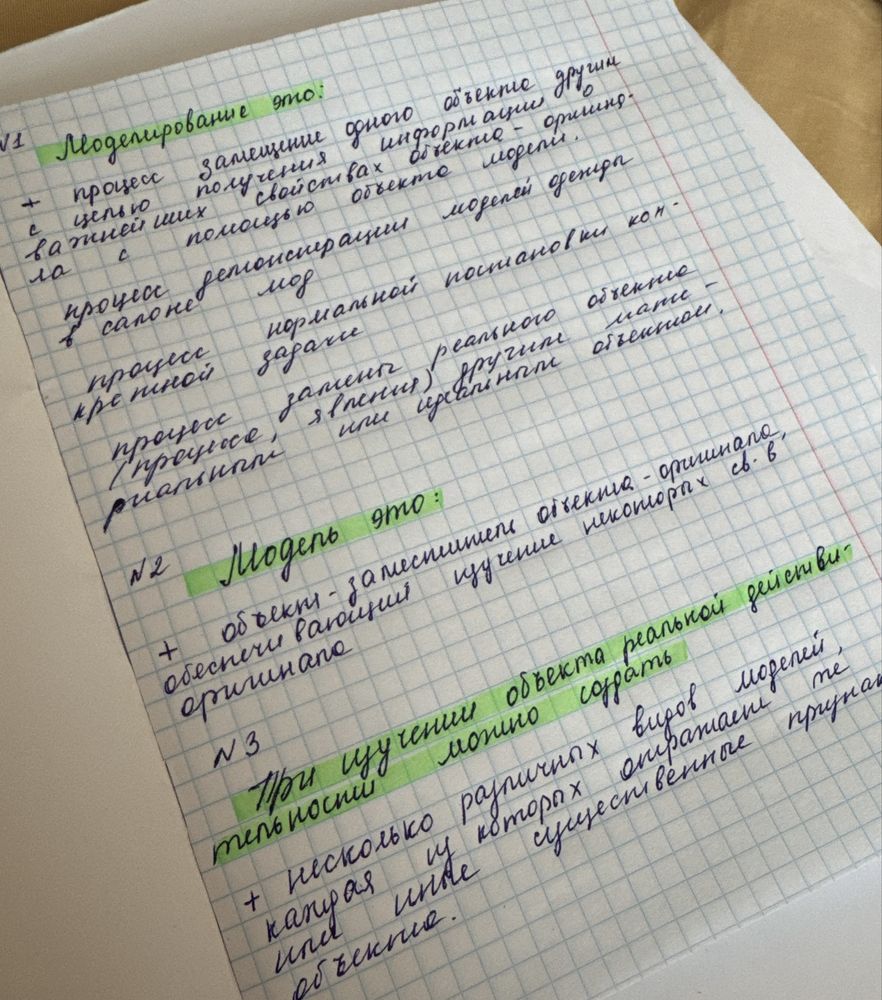 №1 Моделирование это:
+ процесс замещение одного объекта другим
с целью получения информации о
важнейших свойствах объекта-оригина-
ла с помощью объекта модели.
процесс демонстрации моделей одежды
в салоне мод
процесс нормальной постановки кон-
кретной задачи
процесс замены реального объекта
(процесса, явления) другим мате-
риальным или идеальным объектом.
№2 Модель это:
+ объект-заместитель объекта-оригинала,
обеспечивающий изучение некоторых св-в
оригинала
№3
При изучении объекта реальной действи-
тельности можно создать
+ несколько различных видов моделей,
каждая из которых отражает те
или иные существенные признак
объекта.